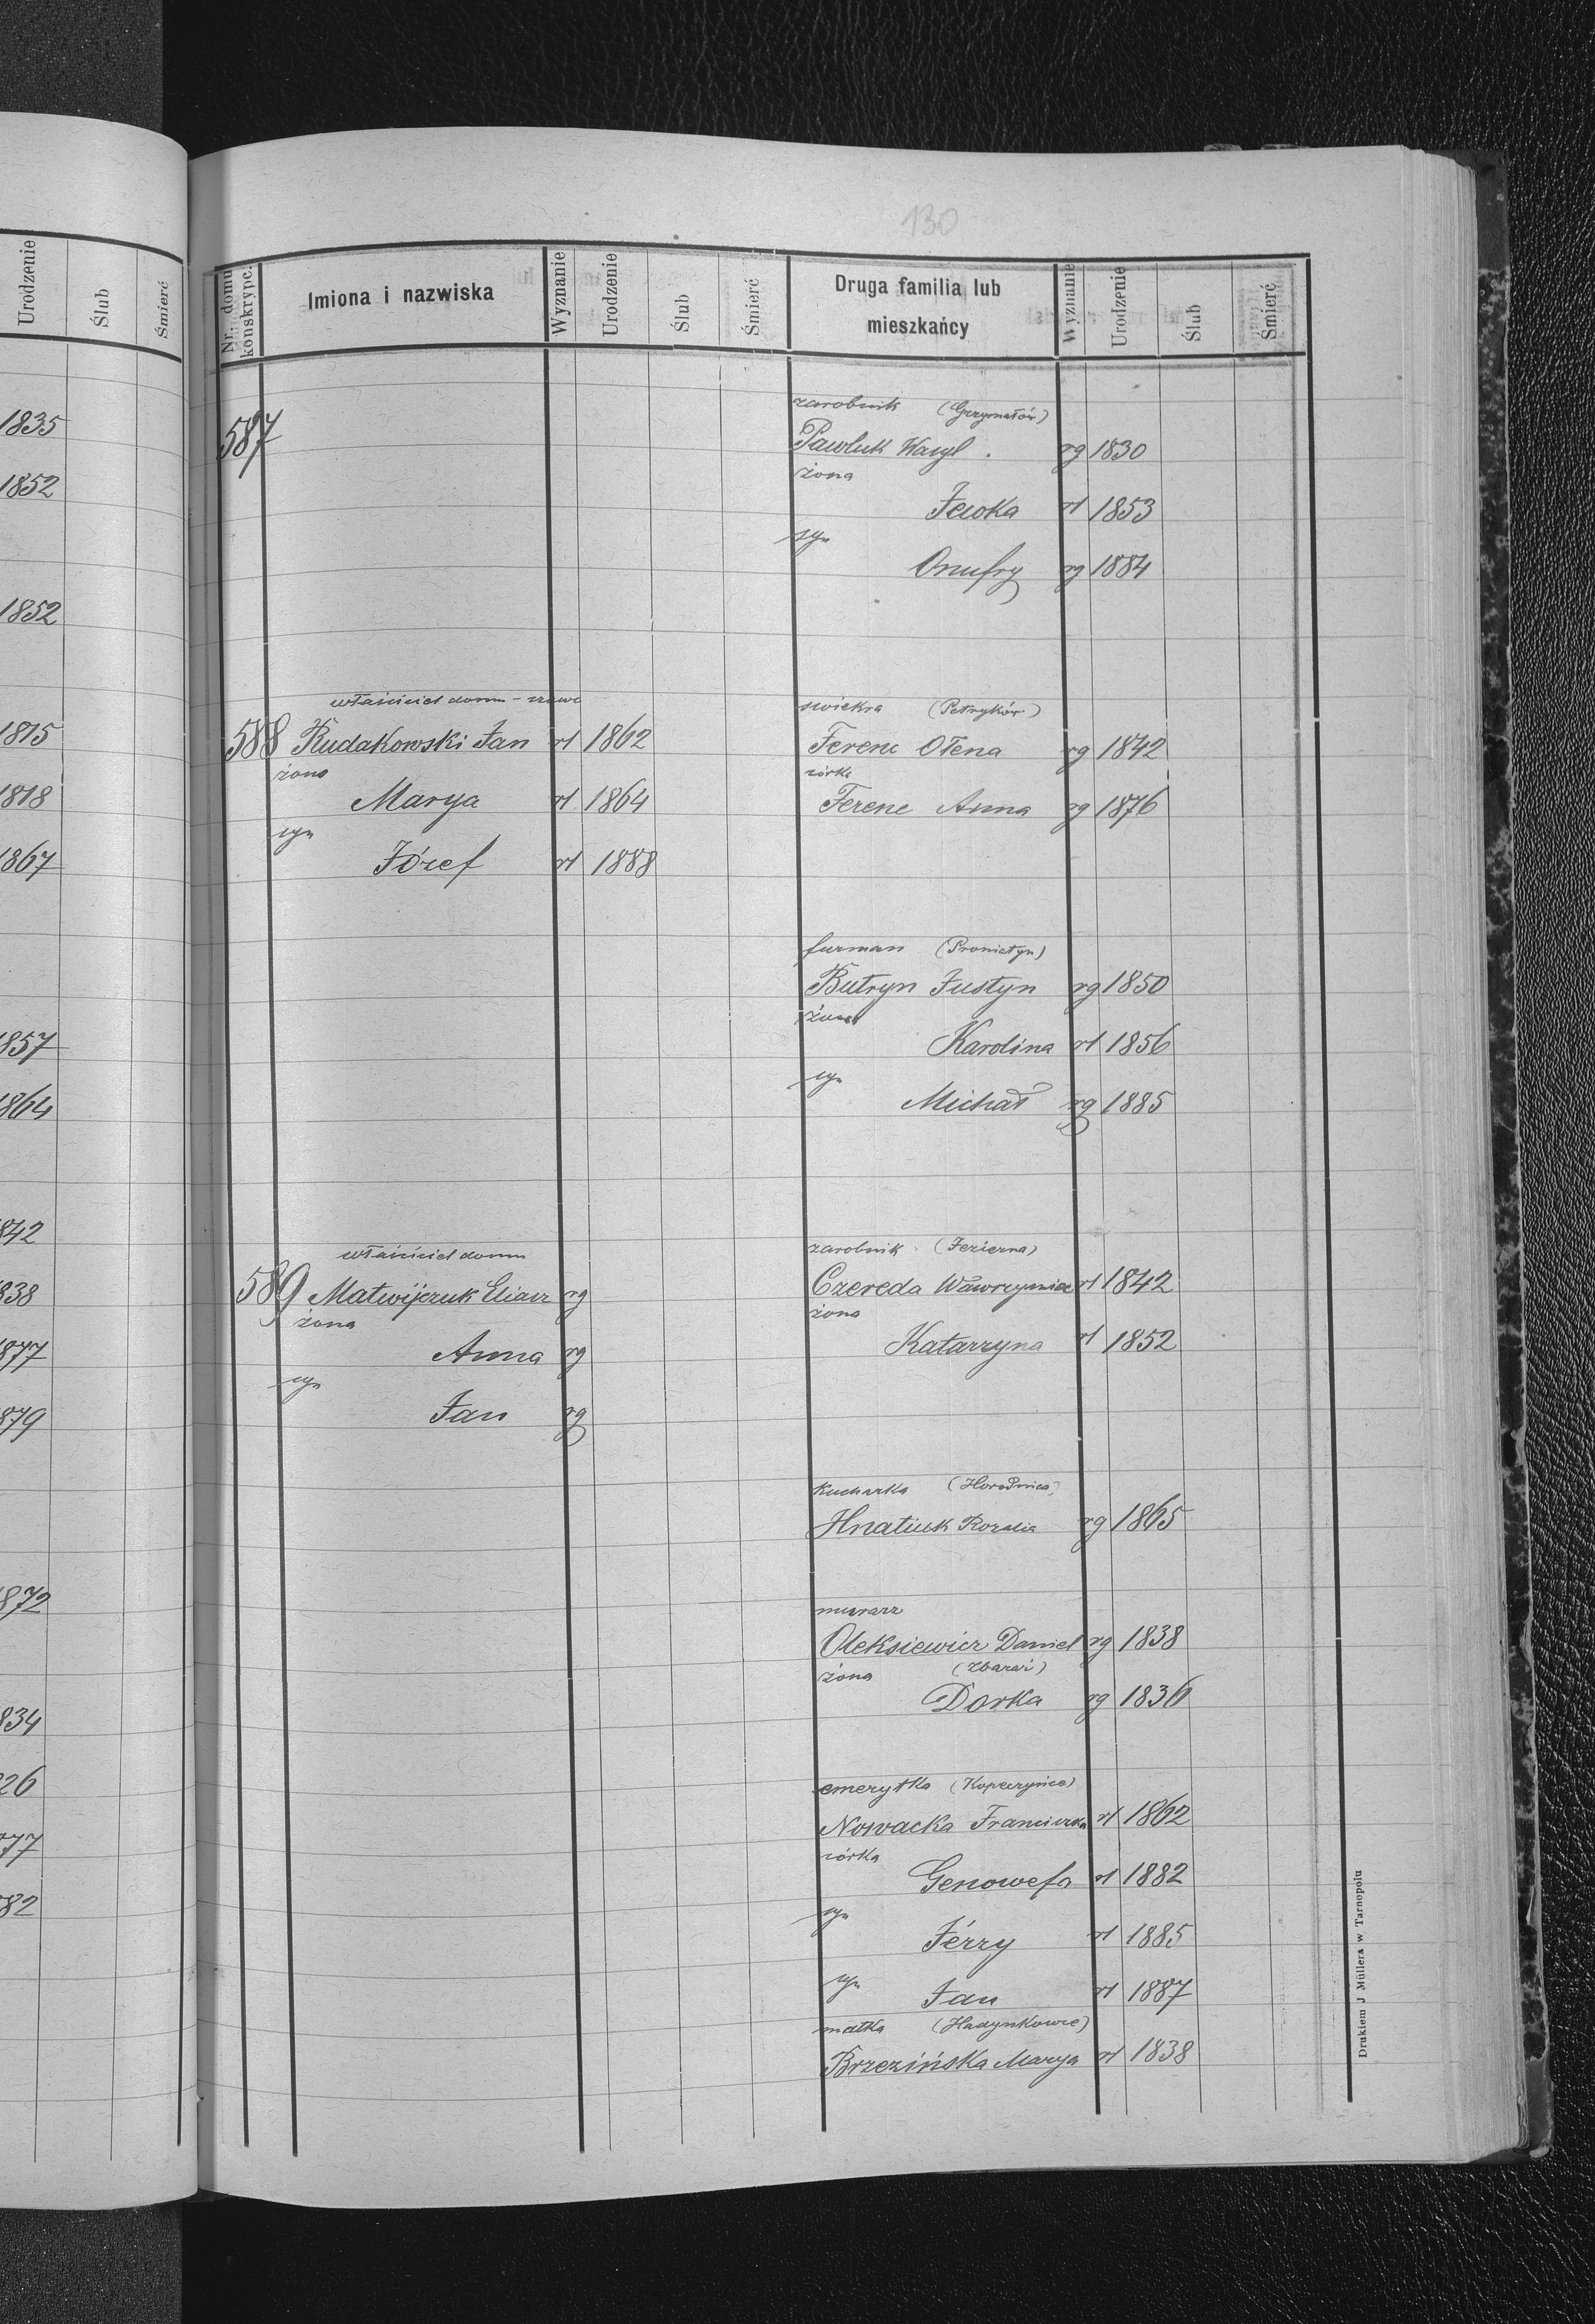 130
Urodzenie Ślub Śmierć
Nr. domu konskrypc. Imiona i nazwiska Wyznanie Urodzenie Ślub Śmierć Druga familia lub mieszkańcy Wyznanie Urodzenie Ślub Śmierć
1835
1852
1852
1815
1818
1867
1857
1864
842
838
877
879
872
834
26
77
82
587
zarobnik (Grzymałów)
Pawluk Wasyl rg 1830
żona
Jewka rł 1853
syn
Onufry rg 1884
właściciel domu - szewc
588 Rudakowski Jan rł 1862
żona
Marya rł 1864
syn
Józef rł 1888
swiekra (Petryków)
Ferenc Ołena rg 1842
córka
Ferenc Anna rg 1876
furman (Proniatyn)
Butryn Justyn rg 1850
żona
Karolina rł 1856
syn
Michał rg 1885
właściciel domu
589 Matwijczuk Eliasz rg
żona
Anna rg
syn
Jan rg
zarobnik (Jezierna)
Czereda Wawrzyniec rł 1842
żona
Katarzyna rł 1852
kucharka (Horodnica)
Hnatiuk Rozalia rg 1865
murarz
Oleksiewicz Daniel rg 1838
żona (Zbaraż)
Dorka rg 1836
emerytka (Kopeczyńce)
Nowacka Franciszka rł 1862
córka
Genowefa rł 1882
syn
Jerzy rł 1885
syn
Jan rł 1887
matka (Hadynkowce)
Brzezińska Marya rł 1838
Drukiem J Müllera w Tarnopolu